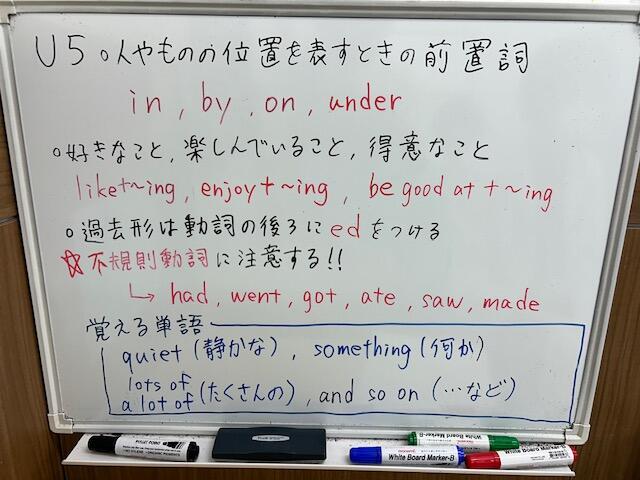 U5 ○人やものの位置を表すときの前置詞
in, by, on, under
○好きなこと, 楽しんでいること, 得意なこと
like+~ing, enjoy+~ing, be good at+~ing
○過去形は動詞の後ろにedをつける
☆不規則動詞に注意する!!
↳ had, went, got, ate, saw, made
覚える単語
quiet(静かな), something(何か)
lots of
a lot of(たくさんの), and so on(…など)
White Board Marker-B
White Board Marker-B
White Board Marker